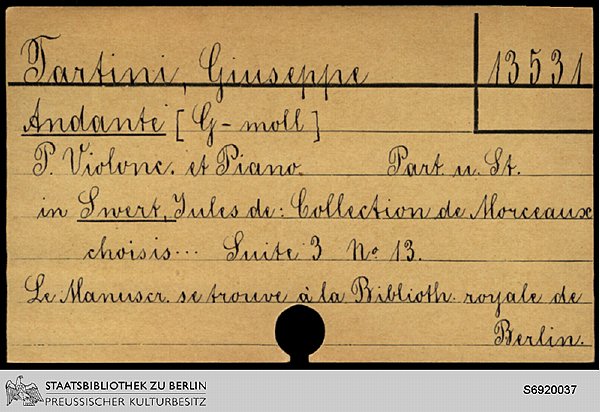 Tartini, Giuseppe 13531
Andante [G-moll]
P. Violonc. et Piano. Part. u. St.
in Swert, Jules de: Collection de Morceaux
choisis... Suite 3 No 13.
Le Manuscr. se trouve à la Biblioth. royale de
Berlin.
STAATSBIBLIOTHEK ZU BERLIN
PREUSSISCHER KULTURBESITZ
S6920037